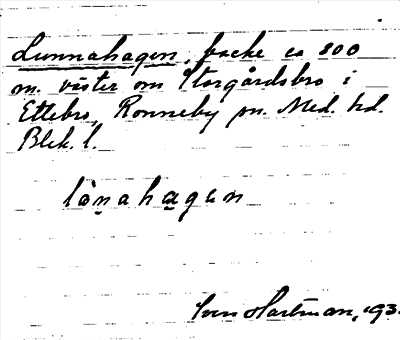 Lunnahagen, backe ca 800
m. väster om Storgårdsbro i
Ettebro, Ronneby sn. Med. hd.
Blek. l.
lànahagen
Sven Hartman, 193